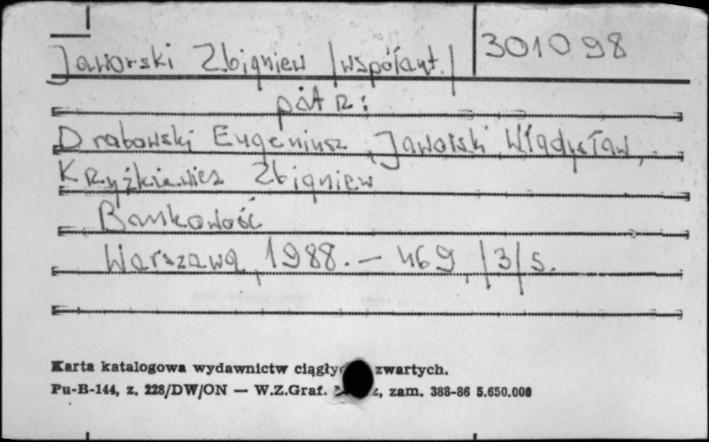 Jaworski Zbigniew /współaut./ 301098
patrz:
Drabowski Eugeniusz, Jaworski Władysław,
Krzyżkiewicz Zbigniew
Bankowość
Warszawa, 1988. — 469, /3/ s.
Karta katalogowa wydawnictw zwartych.
Pu-B-144, z. 228/DW/ON — W.Z.Graf. zam. 388-86 5.650.000